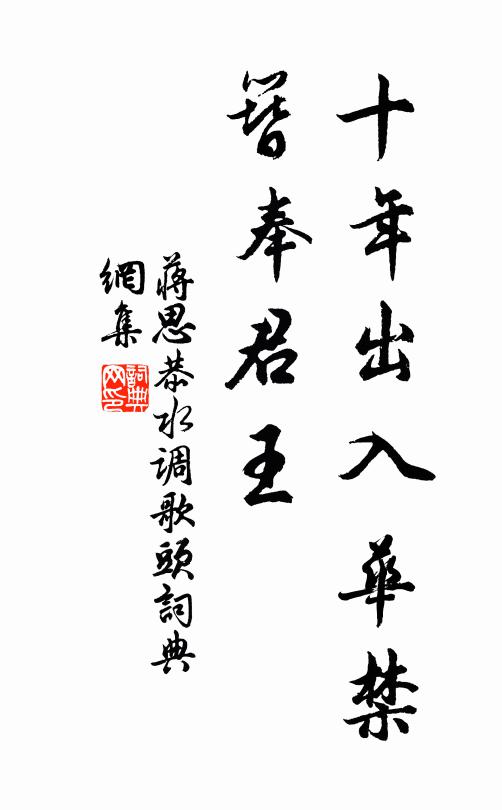 十年出入華禁
簪奉君王
蔣思恭水调歌頭詞典
網集
詞典
网印